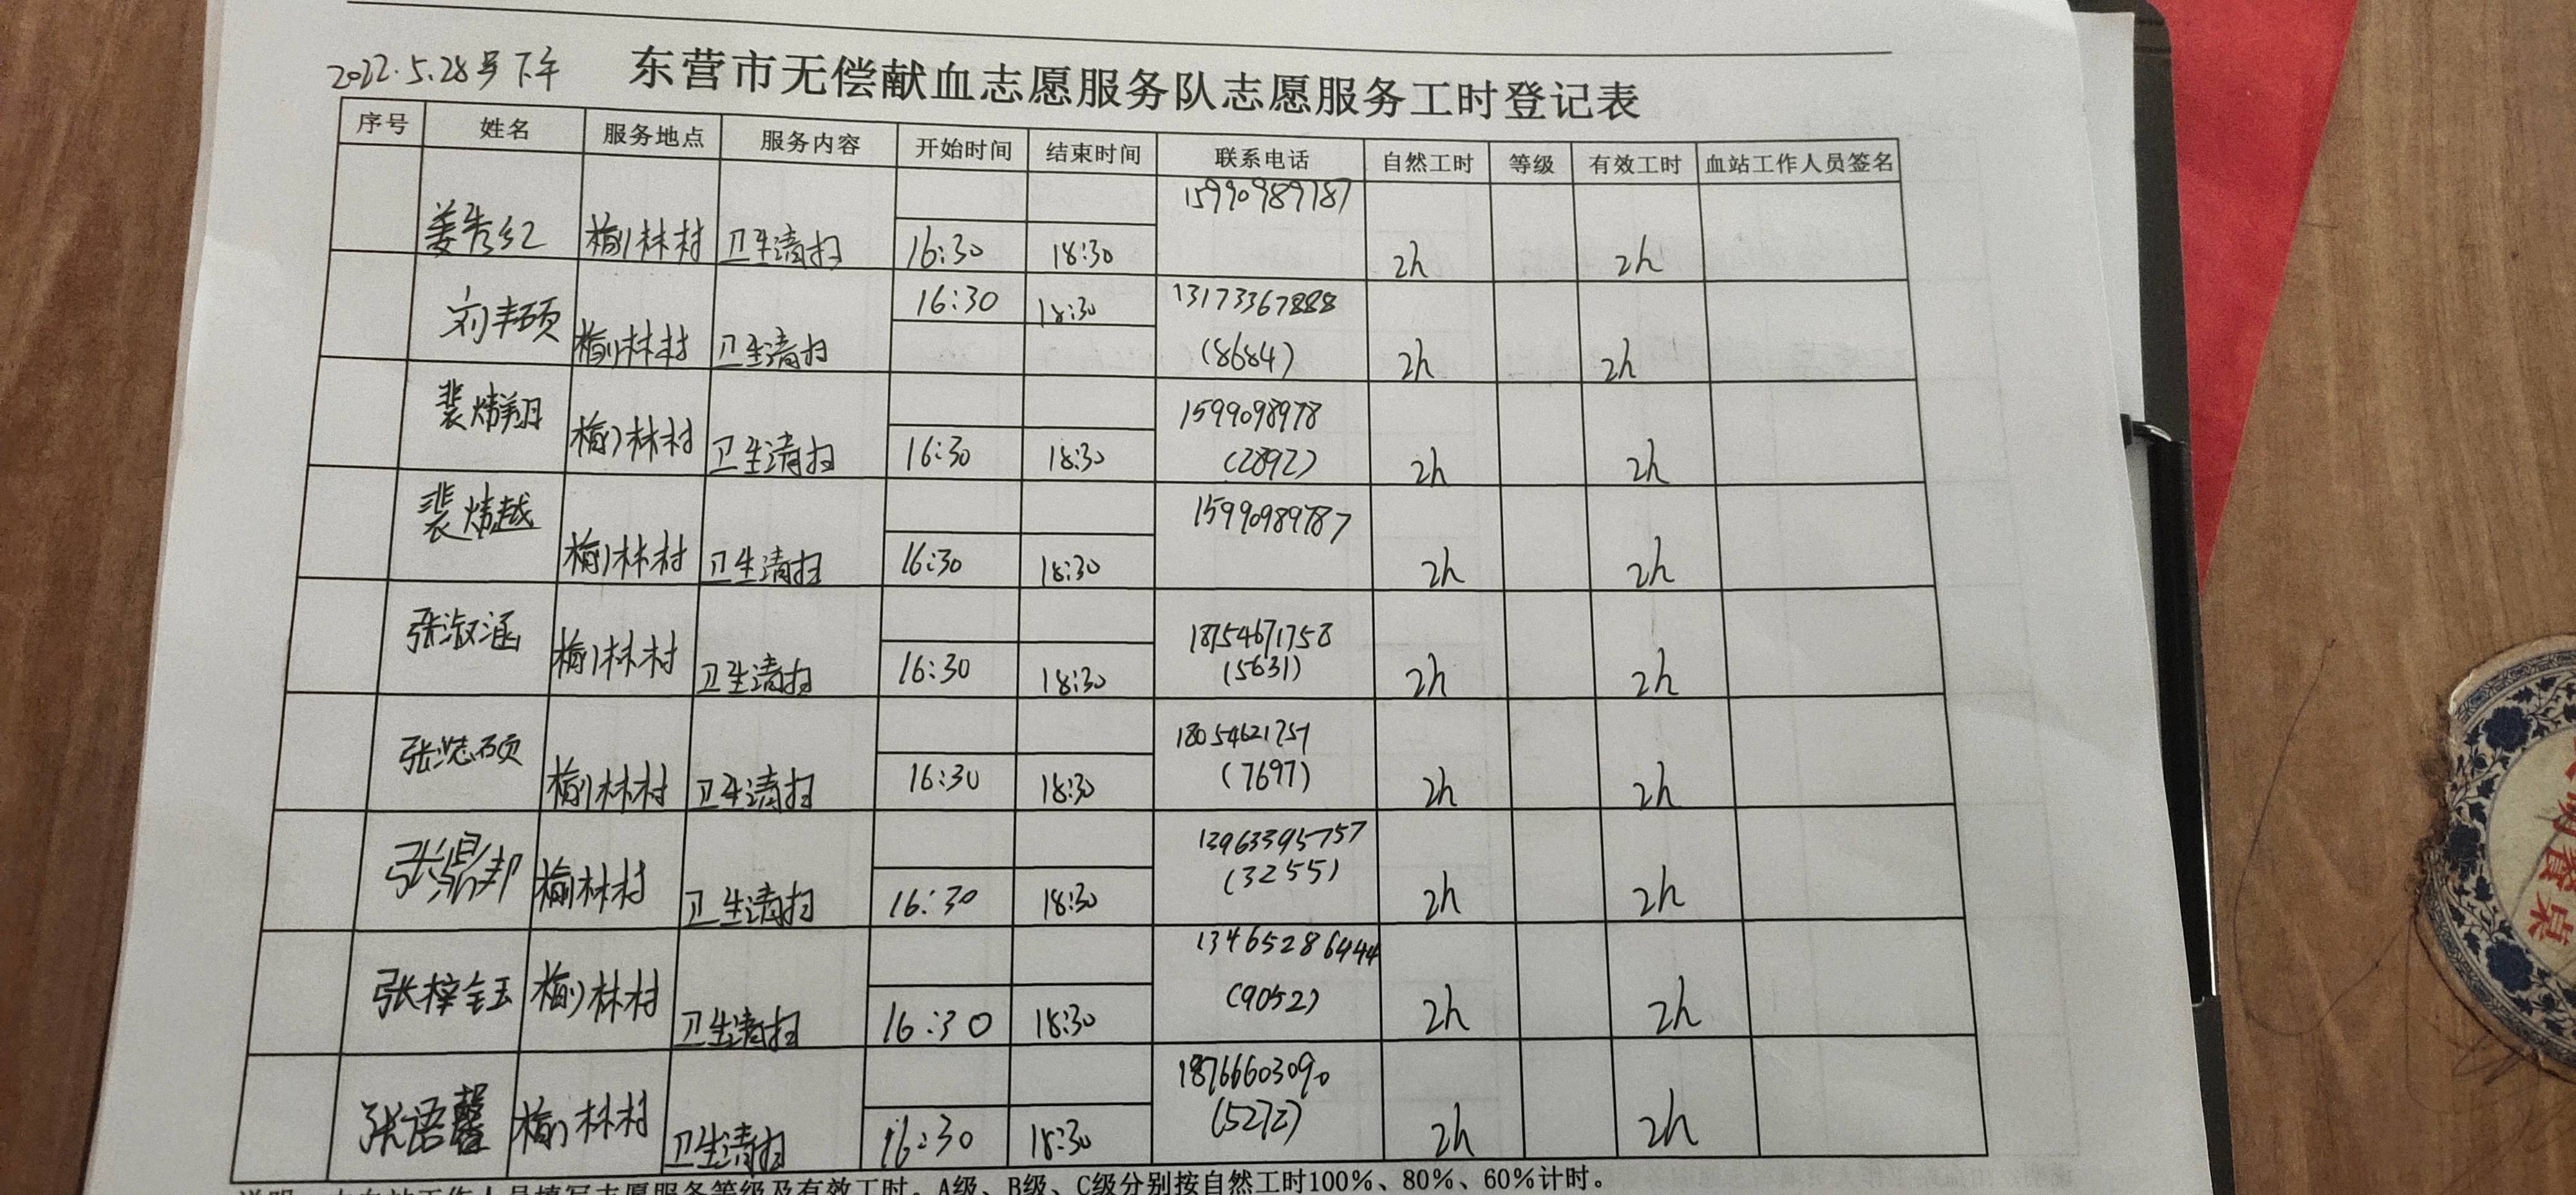 2022.5.28号下午 东营市无偿献血志愿服务队志愿服务工时登记表
序号 姓名 服务地点 服务内容 开始时间 结束时间 联系电话 自然工时 等级 有效工时 血站工作人员签名
15990989787
姜秀红 榆林村 卫生清扫 16:30 18:30 2h 2h
刘丰硕 16:30 18:30 13173367888
榆林村 卫生清扫 (8684) 2h 2h
裴炜翔 1599098978
榆林村 卫生清扫 16:30 18:30 (2892) 2h 2h
裴炜越 15990989787
榆林村 卫生清扫 16:30 18:30 2h 2h
张淑涵 18754671758
榆林村 卫生清扫 16:30 18:30 (5631) 2h 2h
张志硕 18054621751
榆林村 卫生清扫 16:30 18:30 (7697) 2h 2h
张鼎邦 13963395757
榆林村 卫生清扫 16:30 18:30 (3255) 2h 2h
张梓钰 13465286444
榆林村 卫生清扫 16:30 18:30 (9052) 2h 2h
张语馨 18766603090
榆林村 卫生清扫 16:30 18:30 (5272) 2h 2h
血站工作人员填写志愿服务等级及有效工时。A级、B级、C级分别按自然工时100%、80%、60%计时。